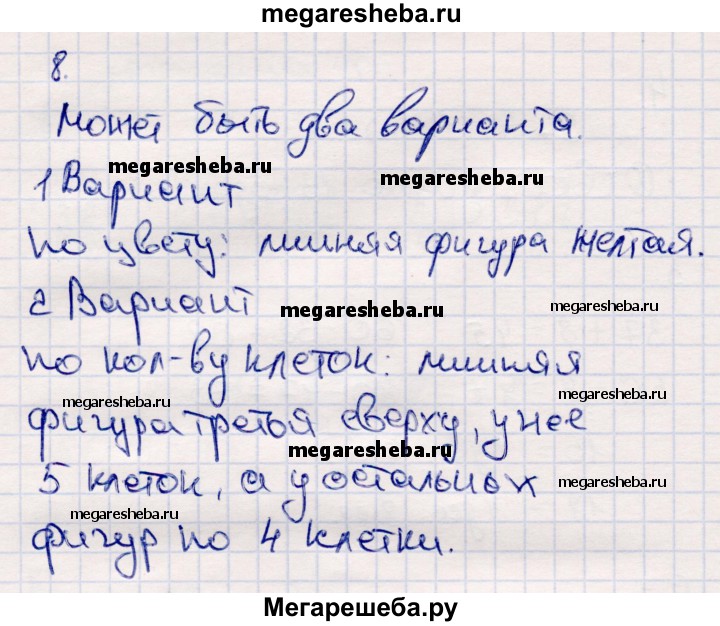 megaresheba.ru
8.
Может быть два варианта.
megaresheba.ru
megaresheba.ru
1 Вариант
по цвету: лишняя фигура желтая.
2 Вариант
megaresheba.ru
megaresheba.ru
по кол-ву клеток: лишняя
megaresheba.ru
megaresheba.ru
фигура третья сверху, у нее
megaresheba.ru
5 клеток, а у остальных
megaresheba.ru
megaresheba.ru
фигур по 4 клетки.
Мегарешеба.ру